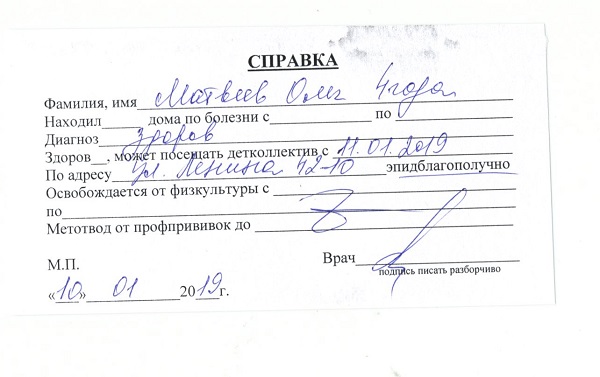 СПРАВКА
Фамилия, имя Матвеев Олег 4 года
Находил ______ дома по болезни с ______ по ______
Диагноз здоров
Здоров__, может посещать детколлектив с 11.01.2019
По адресу ул. Ленина 42-10 эпидблагополучно
Освобождается от физкультуры с ______
по ______
Метотвод от профпрививок до ______
М.П. Врач ______
подпись писать разборчиво
«10» 01 2019 г.